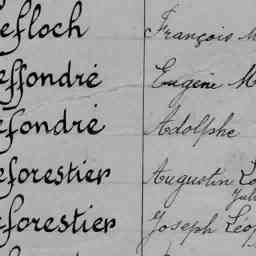 efloch François M
effondré Eugène M
efondré Adolphe
eforestier Augustin Lo
Jul
eforestier Joseph Léop